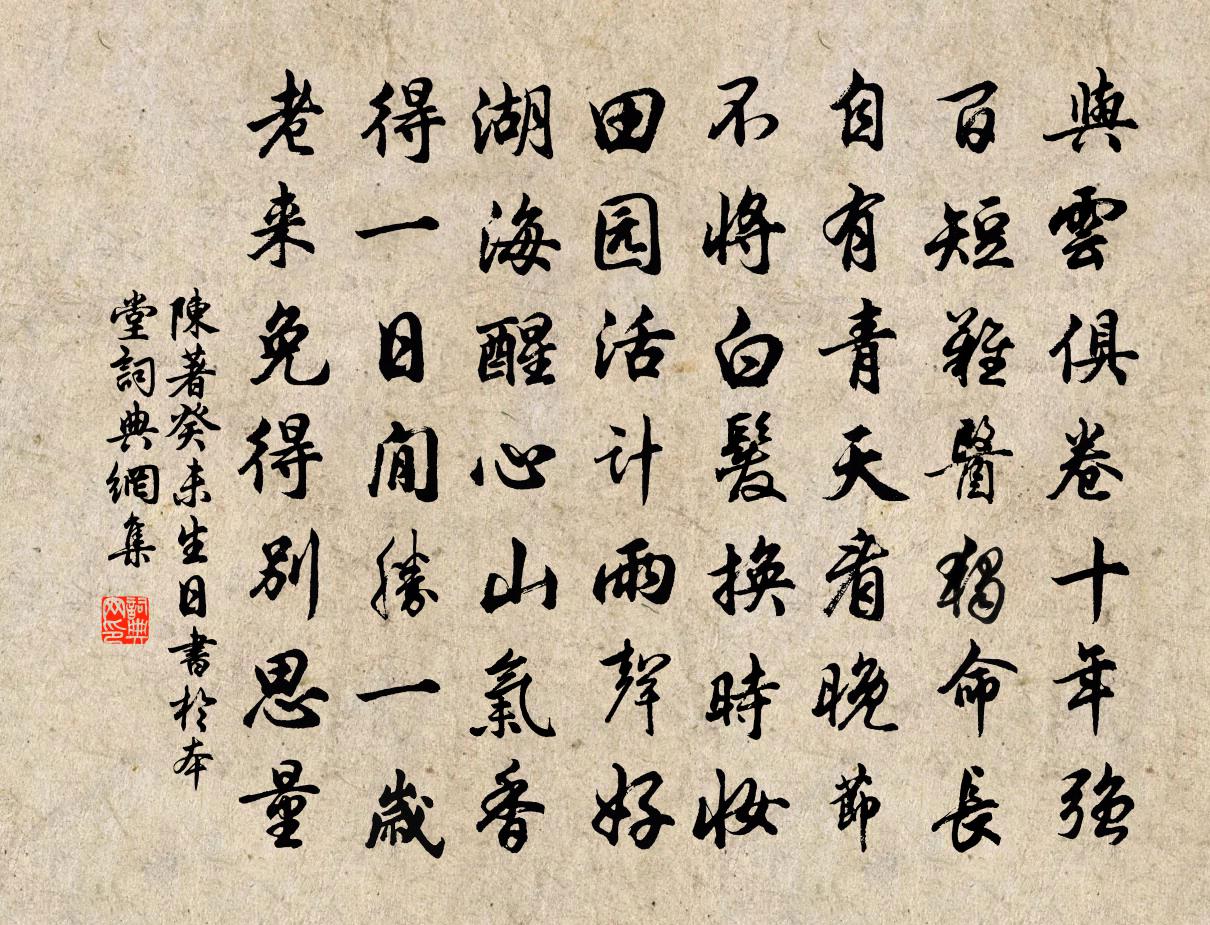 與雲俱卷十年強
百短難醫獨命長
自有青天看晚節
不将白髮換時妝
田园活计雨聲好
湖海醒心山氣香
得一日閒勝一歲
老来免得別思量
陳著癸未生日書於本
堂詞典網集
詞典
网印